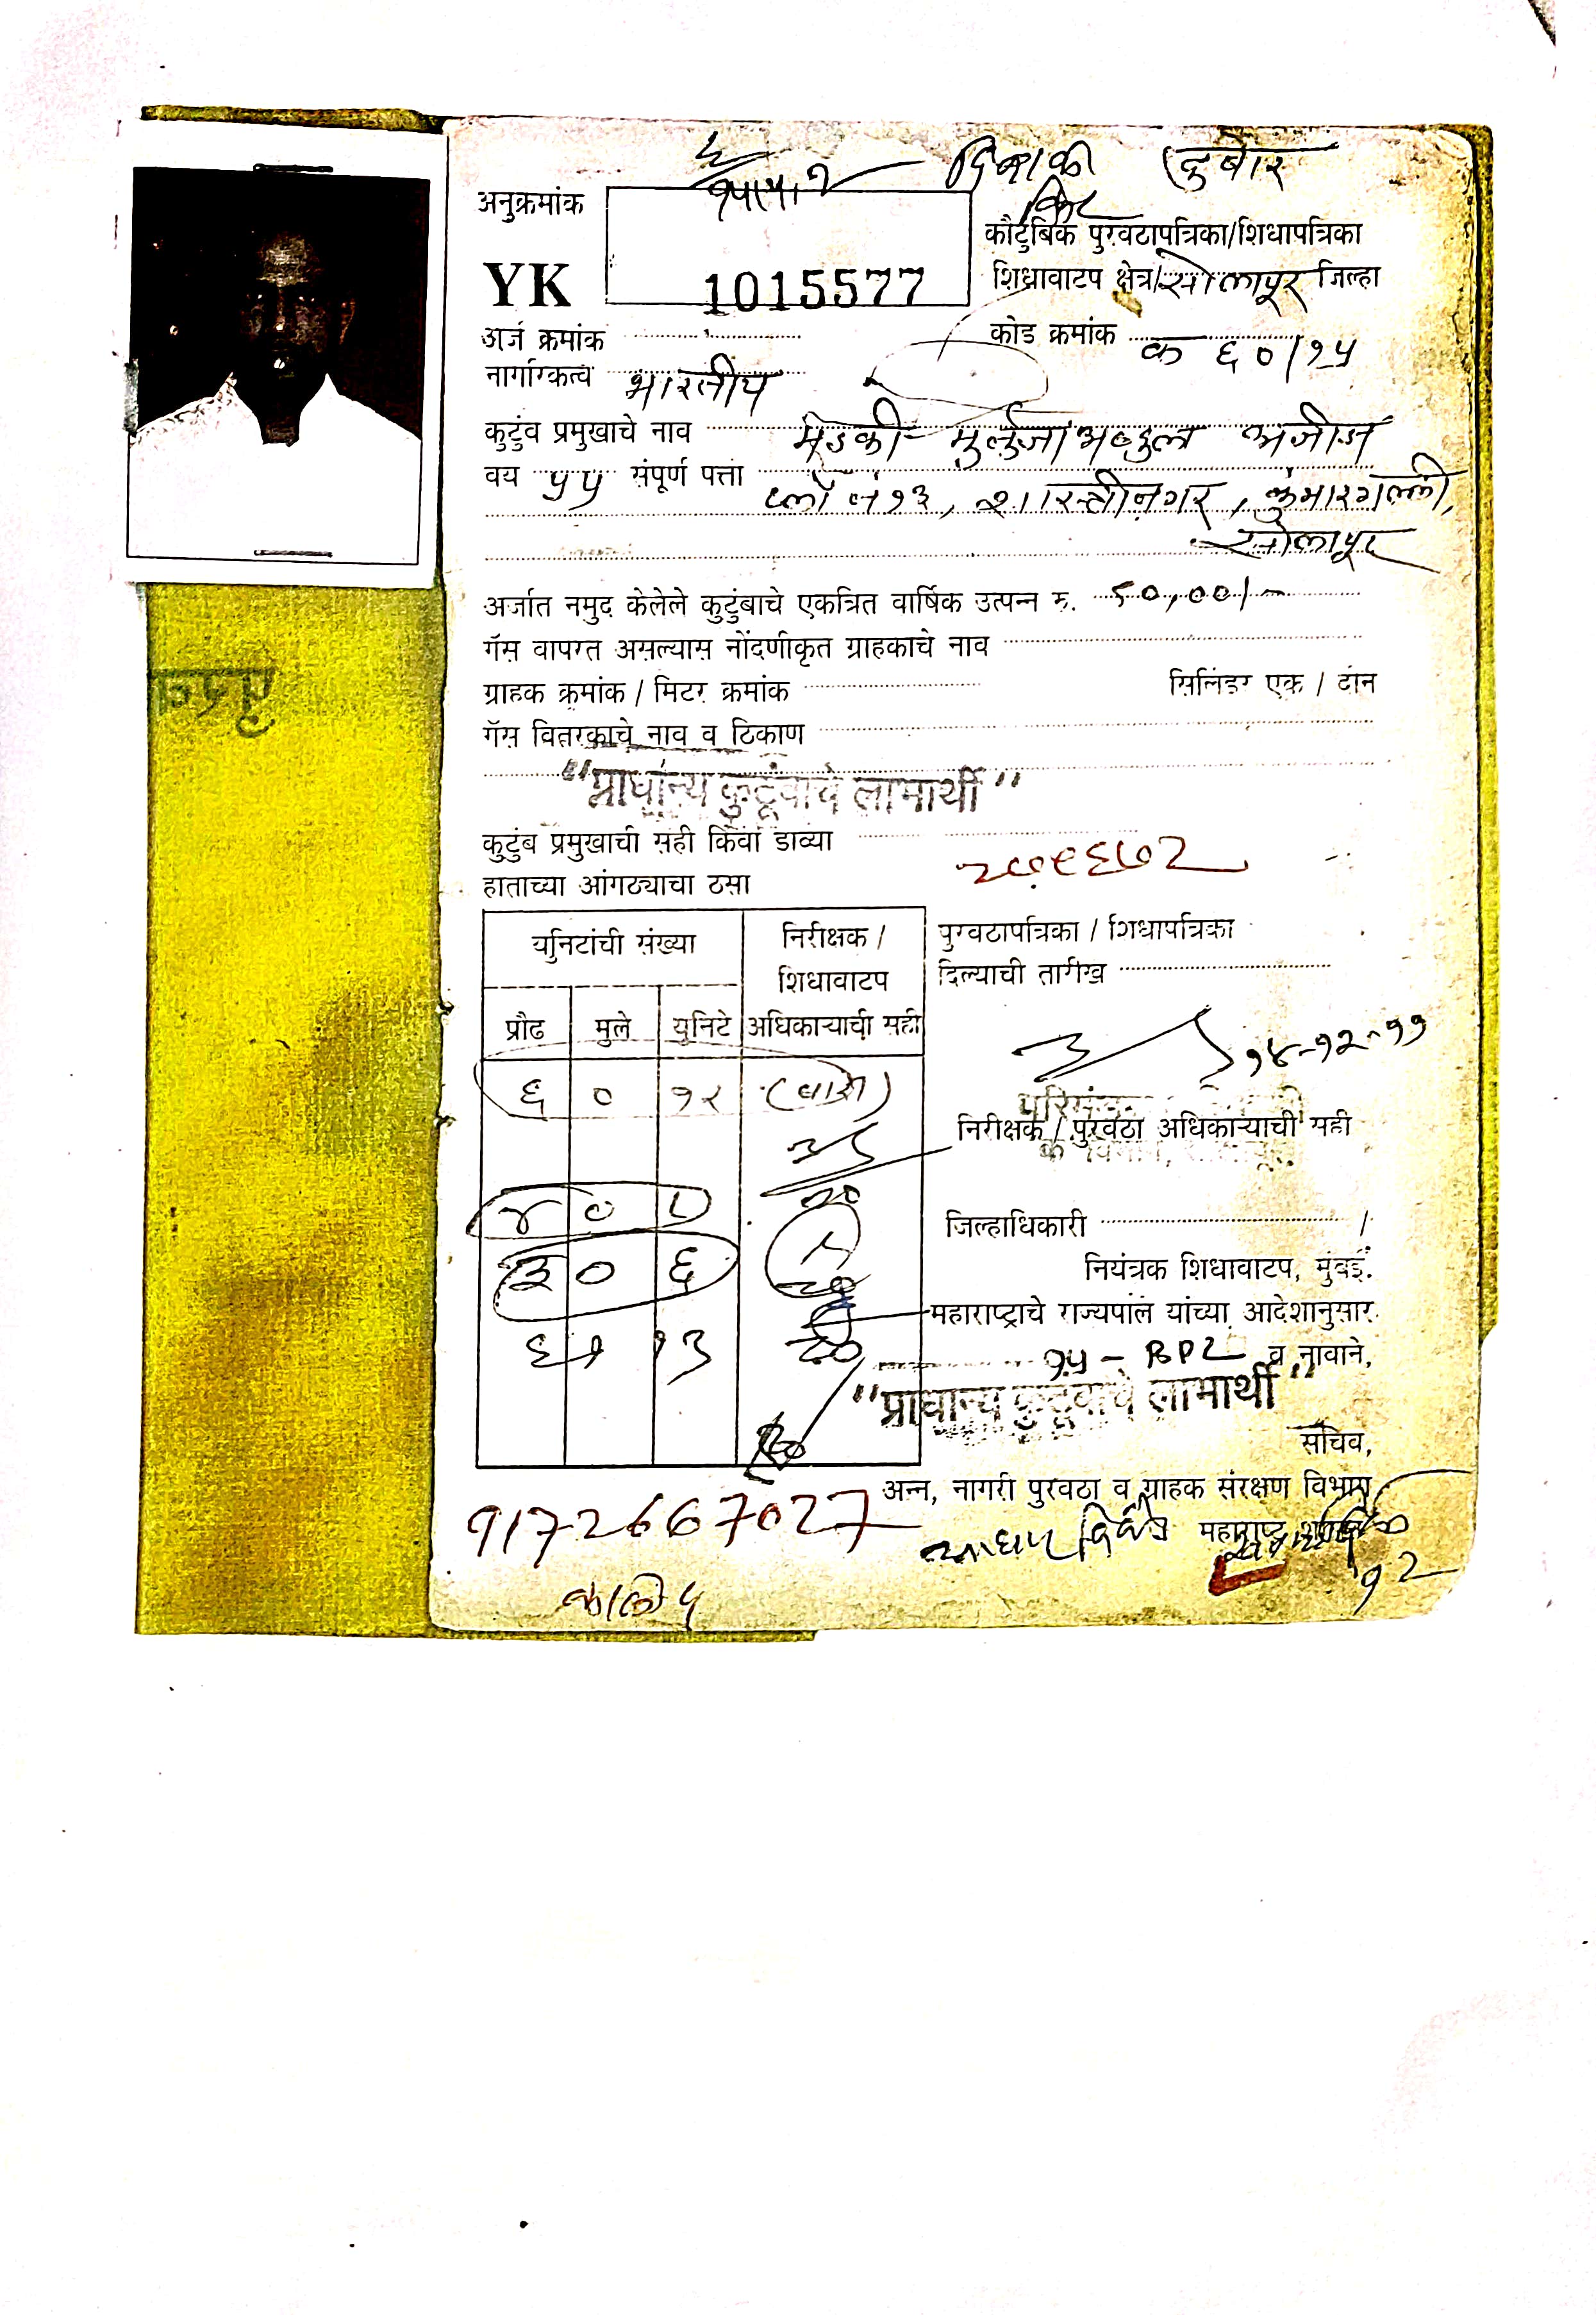 दुबार
अनुक्रमांक
कौटुंबिक पुरवठापत्रिका/शिधापत्रिका
YK 1015577
शिधावाटप क्षेत्र/सोलापूर जिल्हा
अर्ज क्रमांक
कोड क्रमांक क ६०/१५
नागरिकत्व भारतीय
कुटुंब प्रमुखाचे नाव अब्दुल अजीज
वय ५५ संपूर्ण पत्ता
प्लॉ नं १३, शास्त्रीनगर, कुंभारगल्ली,
सोलापूर
अर्जात नमुद केलेले कुटुंबाचे एकत्रित वार्षिक उत्पन्न रु.
गॅस वापरत असल्यास नोंदणीकृत ग्राहकाचे नाव
ग्राहक क्रमांक / मिटर क्रमांक सिलिंडर एक / दोन
गॅस वितरकाचे नाव व ठिकाण
"प्राधान्य कुटूंबाचे लाभार्थी"
कुटुंब प्रमुखाची सही किंवा डाव्या
हाताच्या आंगठ्याचा ठसा
युनिटांची संख्या
निरीक्षक /
शिधावाटप
अधिकाऱ्याची सही
प्रौढ मुले युनिटे
६ ० १२
४ ० ८
३ ० ६
६ १ १३
पुरवठापत्रिका / शिधापत्रिका
दिल्याची तारीख
१४-१२-११
निरीक्षक / पुरवठा अधिकाऱ्याची सही
जिल्हाधिकारी /
नियंत्रक शिधावाटप, मुंबई.
महाराष्ट्राचे राज्यपाल यांच्या आदेशानुसार
१५ - BPL व नावाने,
"प्राधान्य कुटूंबाचे लाभार्थी"
सचिव,
अन्न, नागरी पुरवठा व ग्राहक संरक्षण विभाग
महाराष्ट्र शासन
9172667027
१२